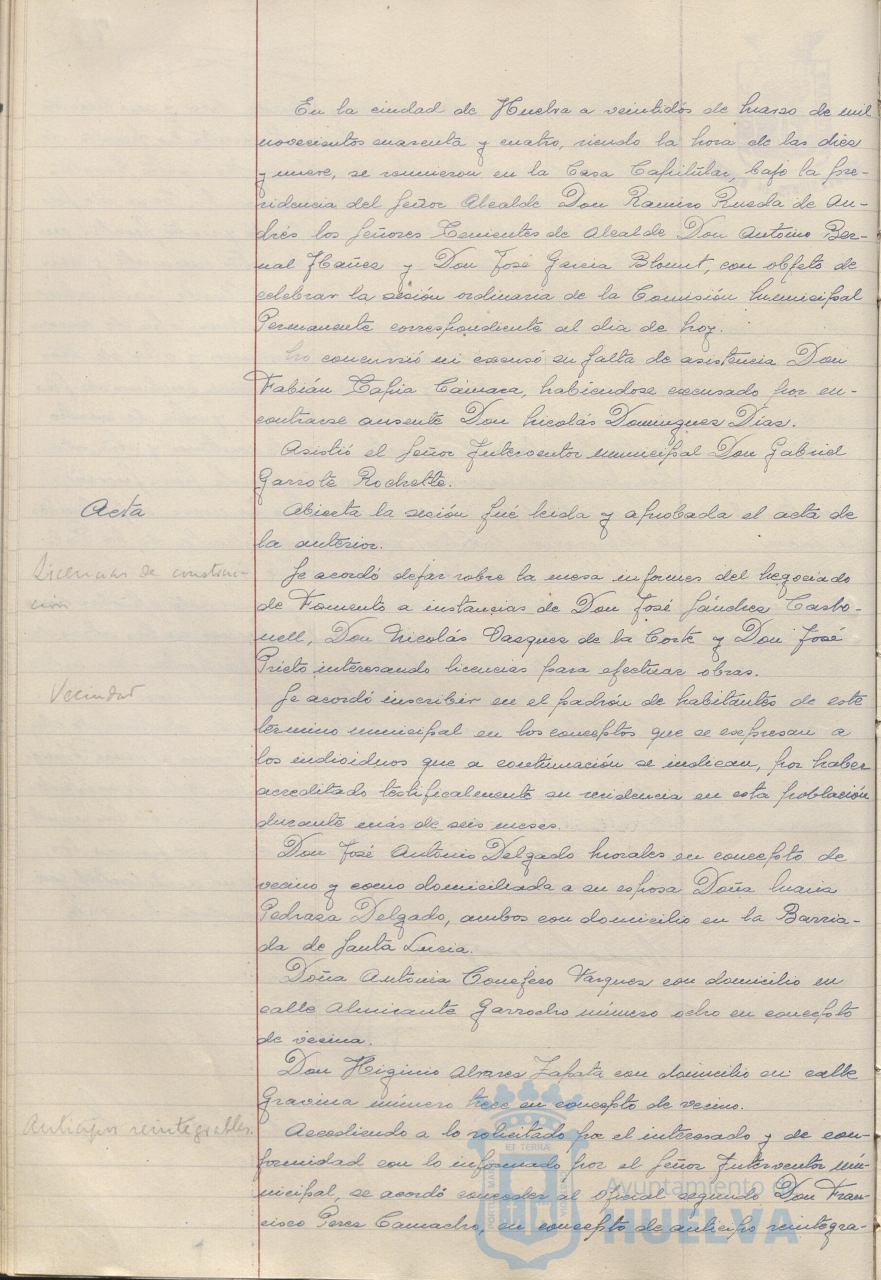 En la ciudad de Huelva a veintidós de marzo de mil
novecientos cuarenta y cuatro, siendo la hora de las diez
y nueve, se reunieron en la Casa Capitular, bajo la pre-
sidencia del Señor Alcalde Don Ramiro Rueda de An-
drés los Señores Tenientes de Alcalde Don Antonio Ber-
nal Ybañez y Don José García Blount, con objeto de
celebrar la sesión ordinaria de la Comisión Municipal
Permanente correspondiente al dia de hoy.
No concurrió ni excusó su falta de asistencia Don
Fabián Tapia Cámara, habiéndose excusado por en-
contrarse ausente Don Nicolás Dominguez Díaz.
Asistió el Señor Interventor municipal Don Gabriel
Garrote Rochette.
Acta
Abierta la sesión fué leida y aprobada el acta de
la anterior.
Licencias de construc-
ción
Se acordó dejar sobre la mesa informes del Negociado
de Fomento a instancias de Don José Sánchez Carbo-
nell, Don Nicolás Vazquez de la Corte y Don José
Prieto interesando licencias para efectuar obras.
Vecindad
Se acordó inscribir en el padrón de habitantes de este
término municipal en los conceptos que se expresan a
los individuos que a continuación se indican, por haber
acreditado testificalmente su residencia en esta población
durante más de seis meses.
Don José Antonio Delgado Morales en concepto de
vecino y como domiciliada a su esposa Doña Maria
Pedraza Delgado, ambos con domicilio en la Barria-
da de Santa Lucia.
Doña Antonia Conejero Vazquez con domicilio en
calle Almirante Garrocho número ocho en concepto
de vecina.
Don Higinio Alvarez Zapata con domicilio en calle
Gravina número trece en concepto de vecino.
Anticipos reintegrables.
Accediendo a lo solicitado por el interesado y de con-
formidad con lo informado por el Señor Interventor mu-
nicipal, se acordó conceder al oficial segundo Don Fran-
cisco Perez Camacho, en concepto de anticipo reintegra-
Ayuntamiento de
HUELVA